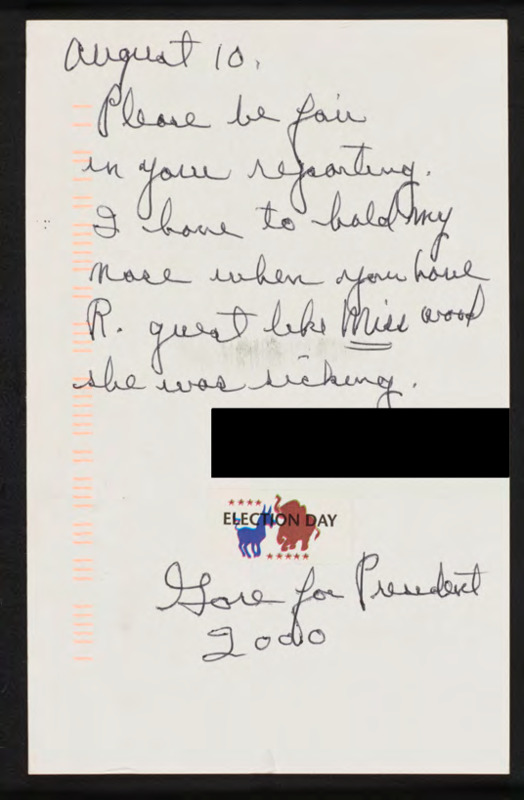 August 10.
Please be fair
in your reporting.
I have to hold my
nose when you have
R. guest like Miss wood
she was sicking.
ELECTION DAY
Gore for President
2000